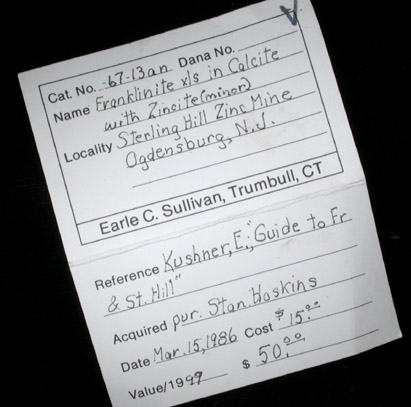 Cat. No. 67-13an Dana No.
Name Franklinite xls in Calcite
with Zincite (minor)
Locality Sterling Hill Zinc Mine
Ogdensburg, N.J.
Earle C. Sullivan, Trumbull, CT
Reference Kushner, E., "Guide to Fr
& St. Hill"
Acquired pur. Stan. Haskins
Date Mar. 15, 1986 Cost $ 15.00
Value/1999 $ 50.00